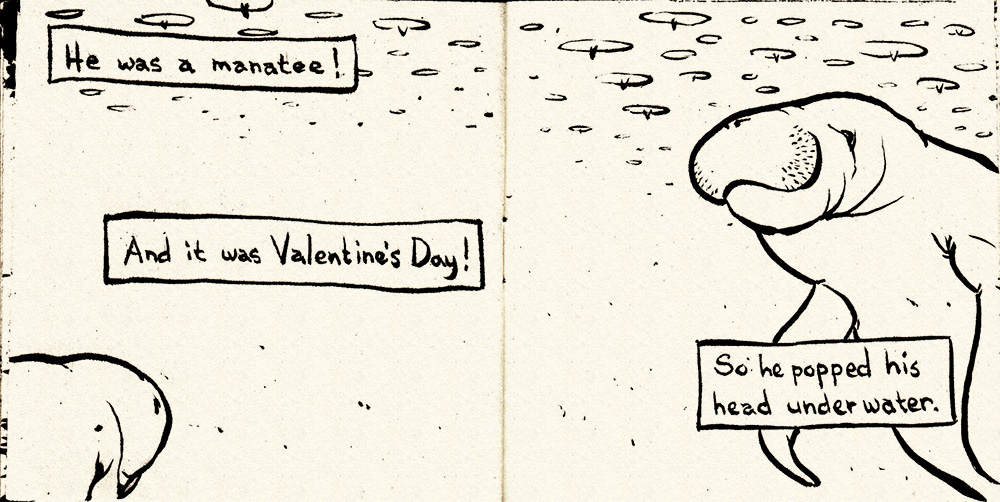 He was a manatee!
And it was Valentine's Day!
So he popped his
head under water.